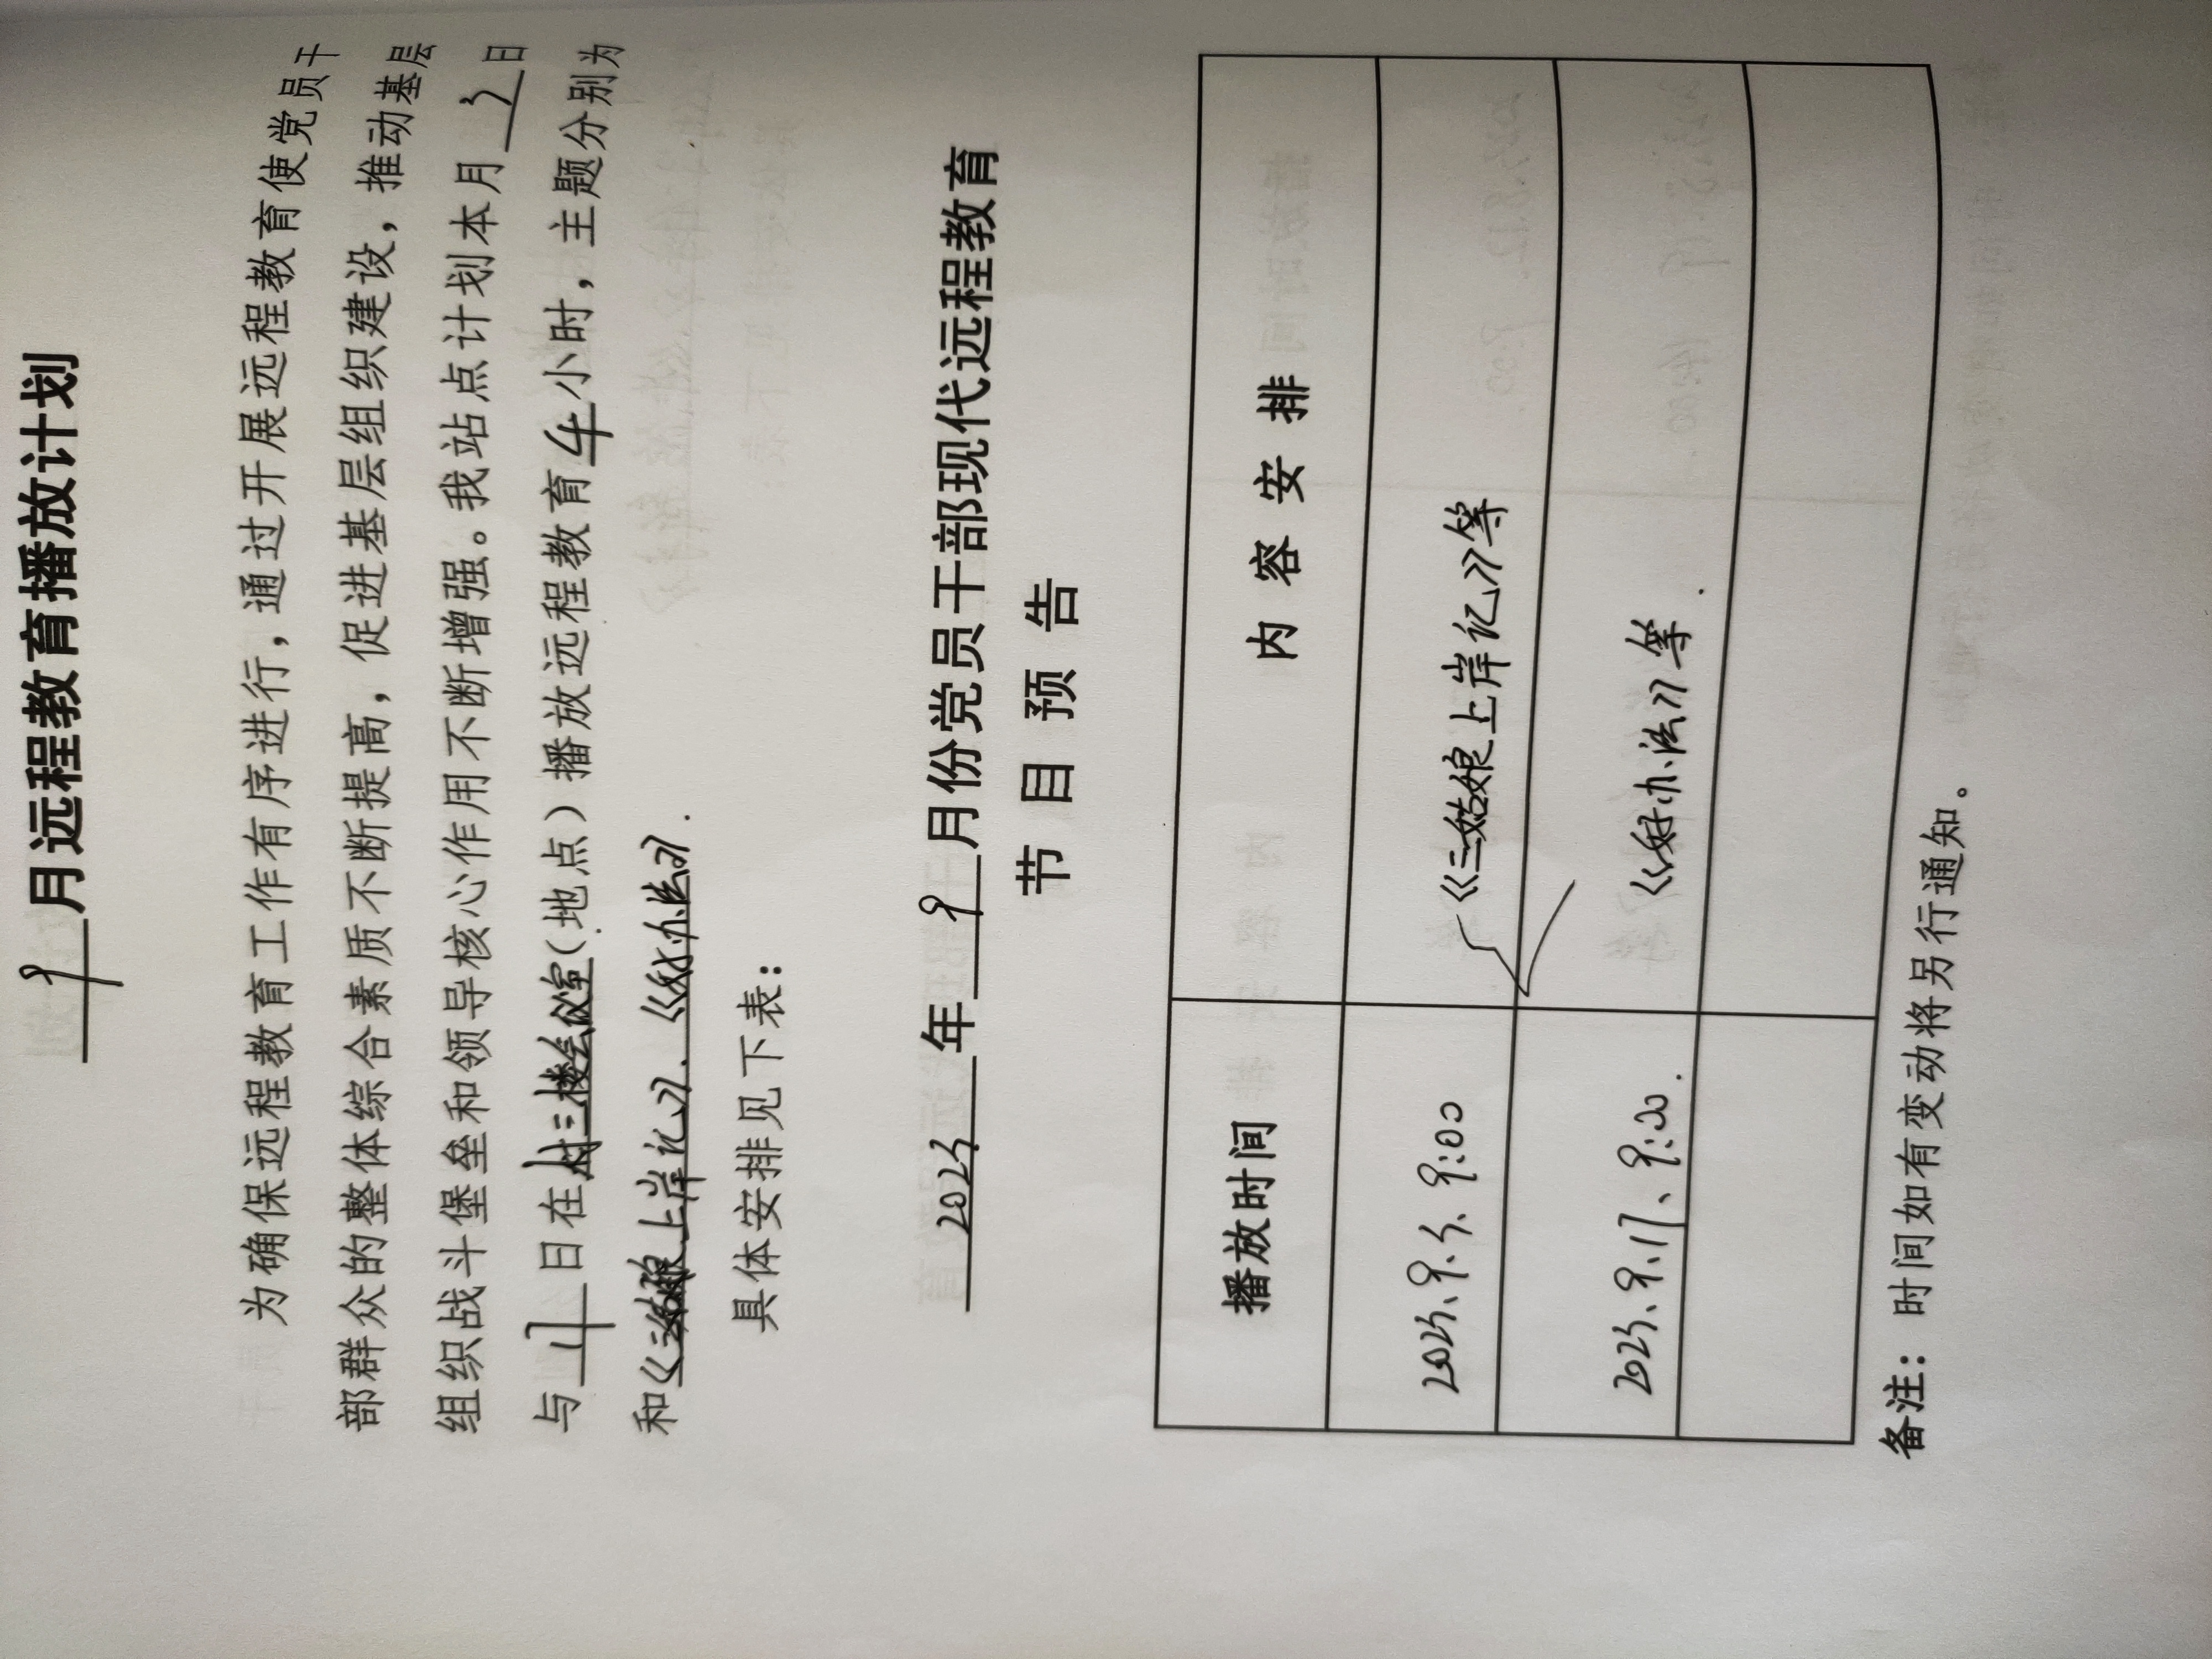 9月远程教育播放计划
为确保远程教育工作有序进行，通过开展远程教育使党员干
部群众的整体综合素质不断提高，促进基层组织建设，推动基层
组织战斗堡垒和领导核心作用不断增强。我站点计划本月5日
与17日在村三楼会议室（地点）播放远程教育4小时，主题分别为
和《三姑娘上岸记》、《好办法》.
具体安排见下表：
2025年9月份党员干部现代远程教育
节目预告
播放时间 内容安排
2025、9、5、9:00 《三姑娘上岸记》等
2025、9、17、9:00. 《好办法》等.
备注：时间如有变动将另行通知。